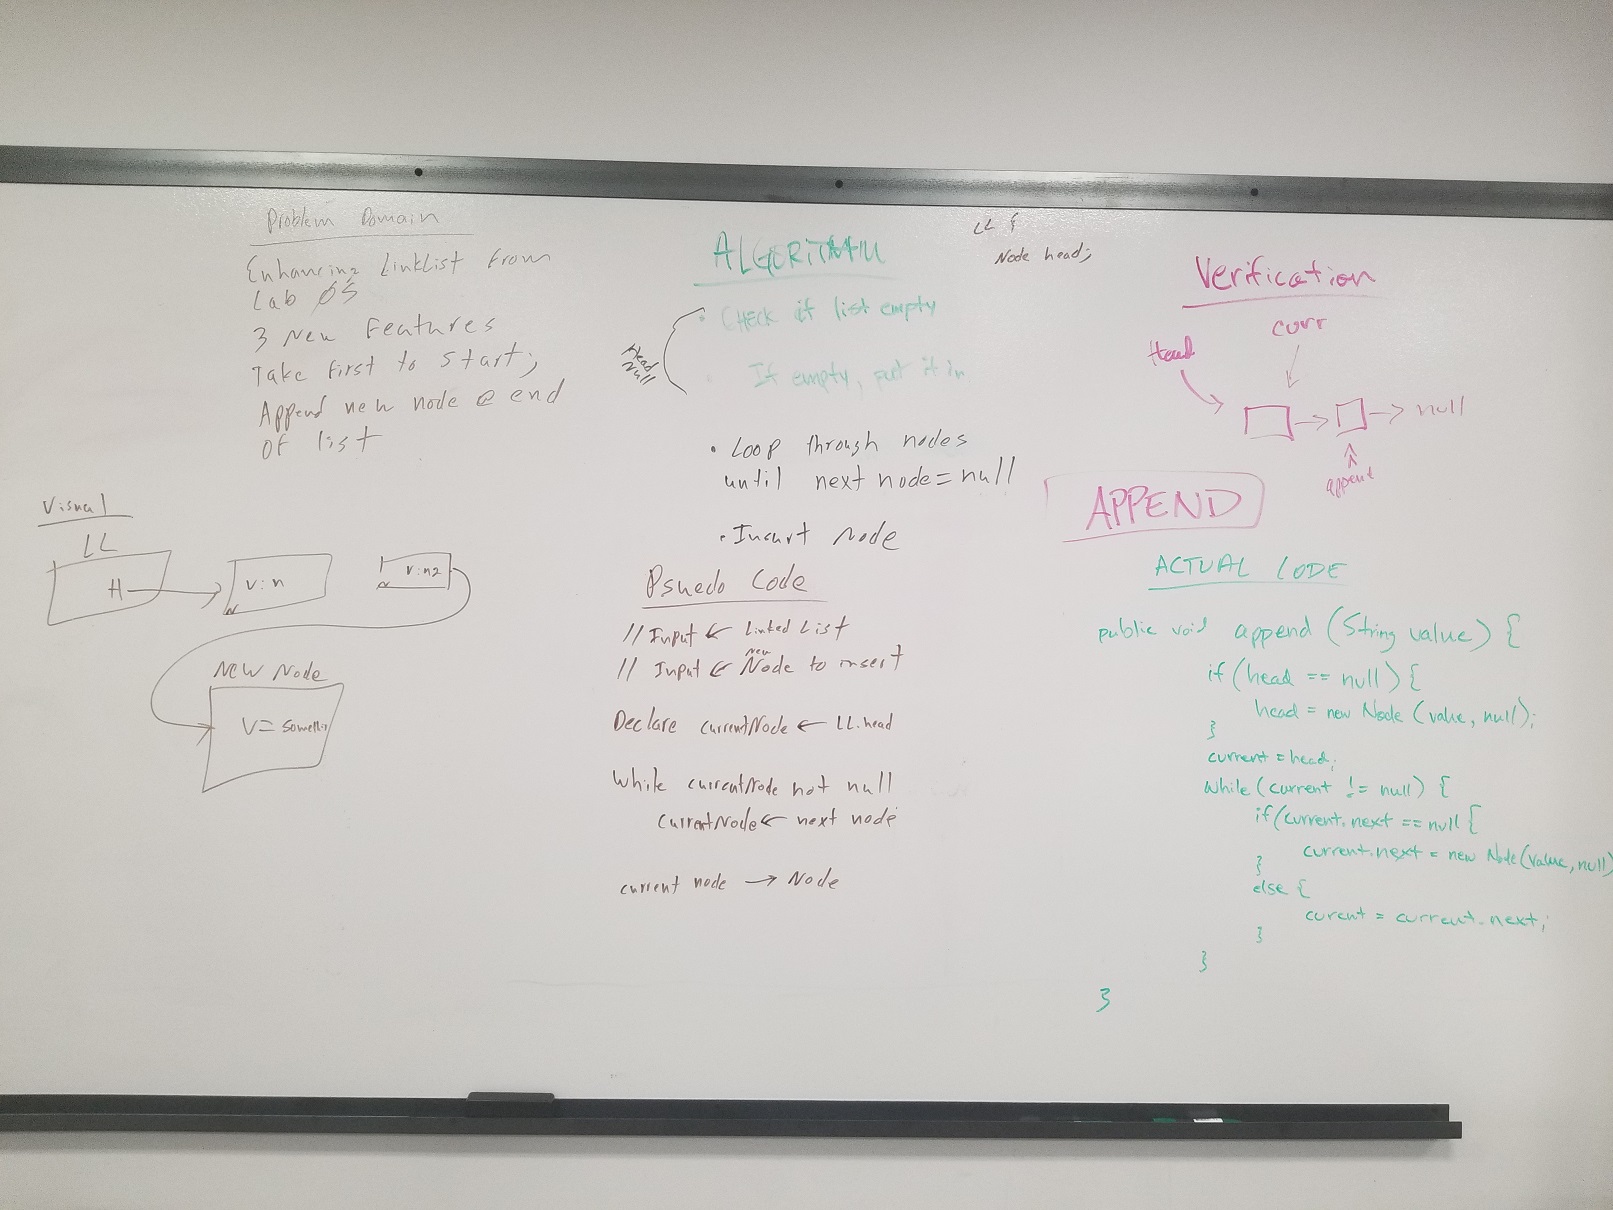 Problem Domain
Enhancing LinkList From
Lab 05
3 New Features
Take First to start;
Append new node @ end
of list
Visual
LL
H
V:n
V:n2
NEW Node
V=
ALGORITHM
LL {
Node head;
• CHECK if list empty
• If empty, put it in
Head
Null
• Loop through nodes
until next node = null
• Insert Node
Psuedo Code
// Input ← Linked List
new
// Input ← Node to insert
Declare currentNode ← LL.head
While currentNode not null
CurrentNode ← next node
current node → Node
Verification
curr
Head
→ → null
append
APPEND
ACTUAL CODE
public void append (String value) {
if (head == null) {
head = new Node (value, null);
}
current = head;
While (current != null) {
if (current.next == null {
current.next = new Node(value, null)
}
else {
curent = current.next;
}
}
}